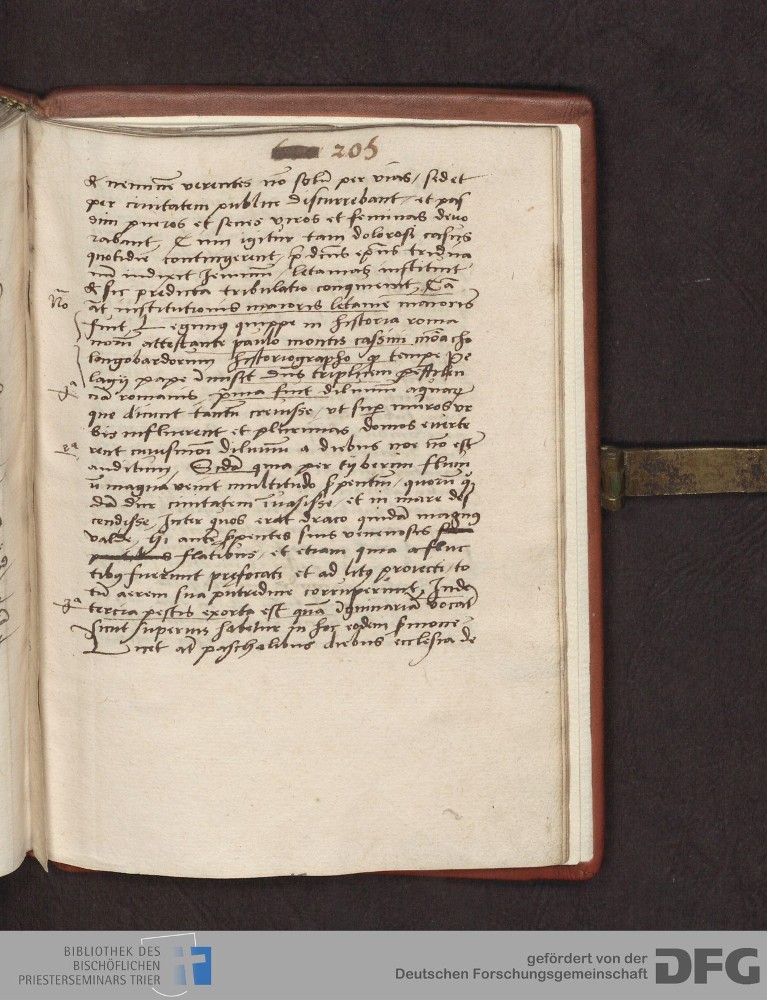 205
& neminē verentes nō solū per vias / sed et
per ciuitatem publice discurrebant / et pas
sim pueros et senes viros et feminas devo
rabant, Cum igitur tam dolorosi casus
quotidie contingerent, p̄dictus ep̄us tridua
nū indixit Jeiunium / letanias instituit
& sic predicta tribulatio conquieuit,
No
at institutionis maioris letanie maioris
fuit, Legimus quippe in historia roma
norū attestante paulo montis cassini monacho
langobardorum historiographo q tempe Pe
lagij pape īmisit dn̄s triplicem pestilen
1a
tiā romanis prima fuit diluuiū aquarū
que dicunt tantū creuisse / vt sup muros vr
bis influerent et plurimas domos euerte
rent cuiusmodi diluuiū a diebus noe nō est
2a
auditum, Secda quia per tyberim flum
ū magna venit multitudo serpentiū / quorū
dā dūr ciuitatem īuasisse / et in mare des
cendisse, Inter quos erat draco quidā magnus
valde, Hi autē serpentes suis venenosis
flatibus / et etiam quia a fluc
tibus fuerunt prefocati et ad litus proiecti / to
tū aerem sua putredine corruperunt, Inde
3a
tercia pestis exorta est quā īguinariā vocat
Sicut superius habetur in hoc eodem sermone
Licet aūt paschalibus diebus ecclesia de
BIBLIOTHEK DES
BISCHÖFLICHEN
PRIESTERSEMINARS TRIER
gefördert von der
Deutschen Forschungsgemeinschaft
DFG